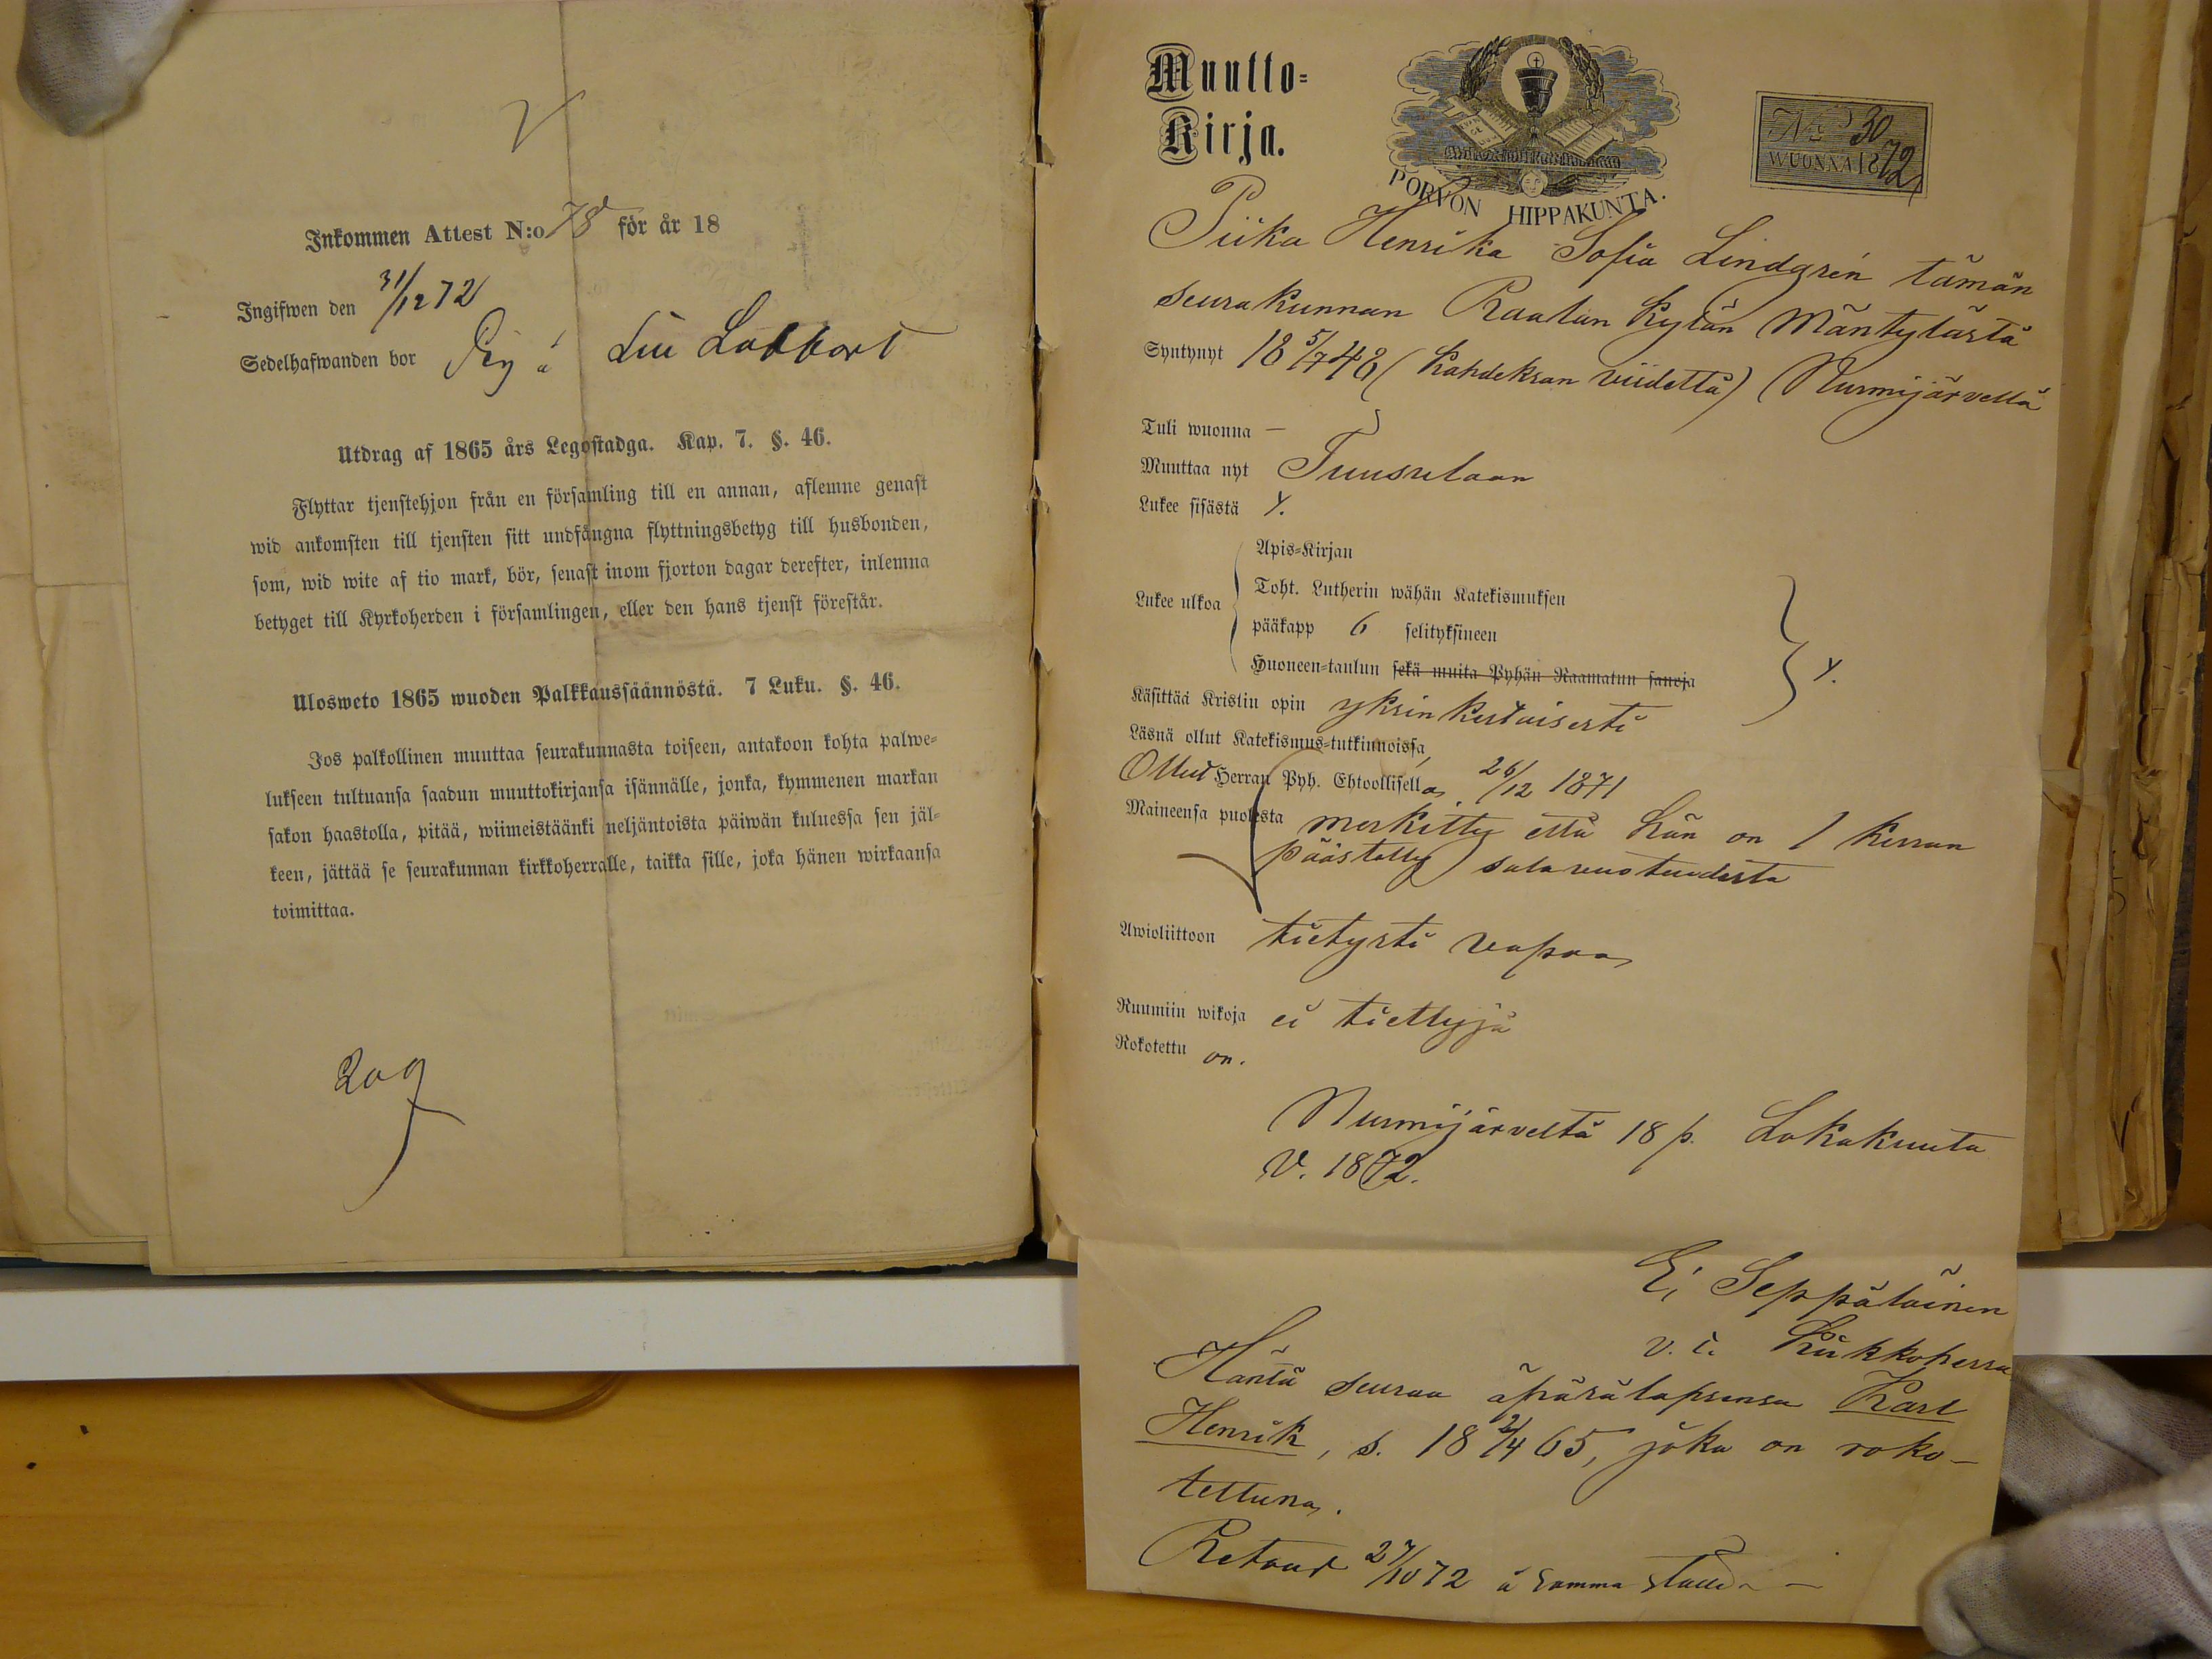 Inkommen Attest N:o 78 för år 18
Ingifwen den 31/12 72
Sedelhafwanden bor
Utdrag af 1865 års Legostadga. Kap. 7. §. 46.
Flyttar tjenstehjon från en församling till en annan, aflemne genast
wid ankomsten till tjensten sitt undfångna flyttningsbetyg till husbonden,
som, wid wite af tio mark, bör, senast inom fjorton dagar derefter, inlemna
betyget till Kyrkoherden i församlingen, eller den hans tjenst förestår.
Ulosweto 1865 wuoden Palkkaussäännöstä. 7 Luku. §. 46.
Jos palkollinen muuttaa seurakunnasta toiseen, antakoon kohta palwe-
lukseen tultuansa saadun muuttokirjansa isännälle, jonka, kymmenen markan
sakon haastolla, pitää, wiimeistäänki neljäntoista päiwän kuluessa sen jäl-
keen, jättää se seurakunnan kirkkoherralle, taikka sille, joka hänen wirkaansa
toimittaa.
209
Muutto-
Kirja.
PORVON HIPPAKUNTA.
No 30
WUONNA 1872
Piika Henrika Sofia Lindgrén tämän
seurakunnan Raalan kylän Mäntylästä
Syntynyt 18 5/7 48 (kahdeksan viidettä) Nurmijärvellä
Tuli wuonna —
Muuttaa nyt Tuusulaan
Lukee sisästä y.
Apis-Kirjan
Toht. Lutherin wähän Katekismuksen
Lukee ulkoa
pääkapp 6 selityksineen
Huoneen-taulun sekä muita Pyhän Raamatun sanoja y.
Käsittää Kristin opin yksinkertaisesti
Läsnä ollut Katekismus-tutkinnoissa,
Ollut Herran Pyh. Ehtoollisella 26/12 1871
Maineensa puolesta merkitty että hän on 1 kerran
päästetty salavuoteudesta
Awioliittoon tietysti vapaa
Ruumiin wikoja ei tiettyjä
Rokotettu on.
Nurmijärveltä 18 p. Lokakuuta
V. 1872.
Seppäläinen
v. i. Kirkkoherra
Häntä seuraa äpärälapsensa Karl
Henrik, s. 18 2/4 65, joka on roko-
tettuna.
Retour 27/10 72 å samma